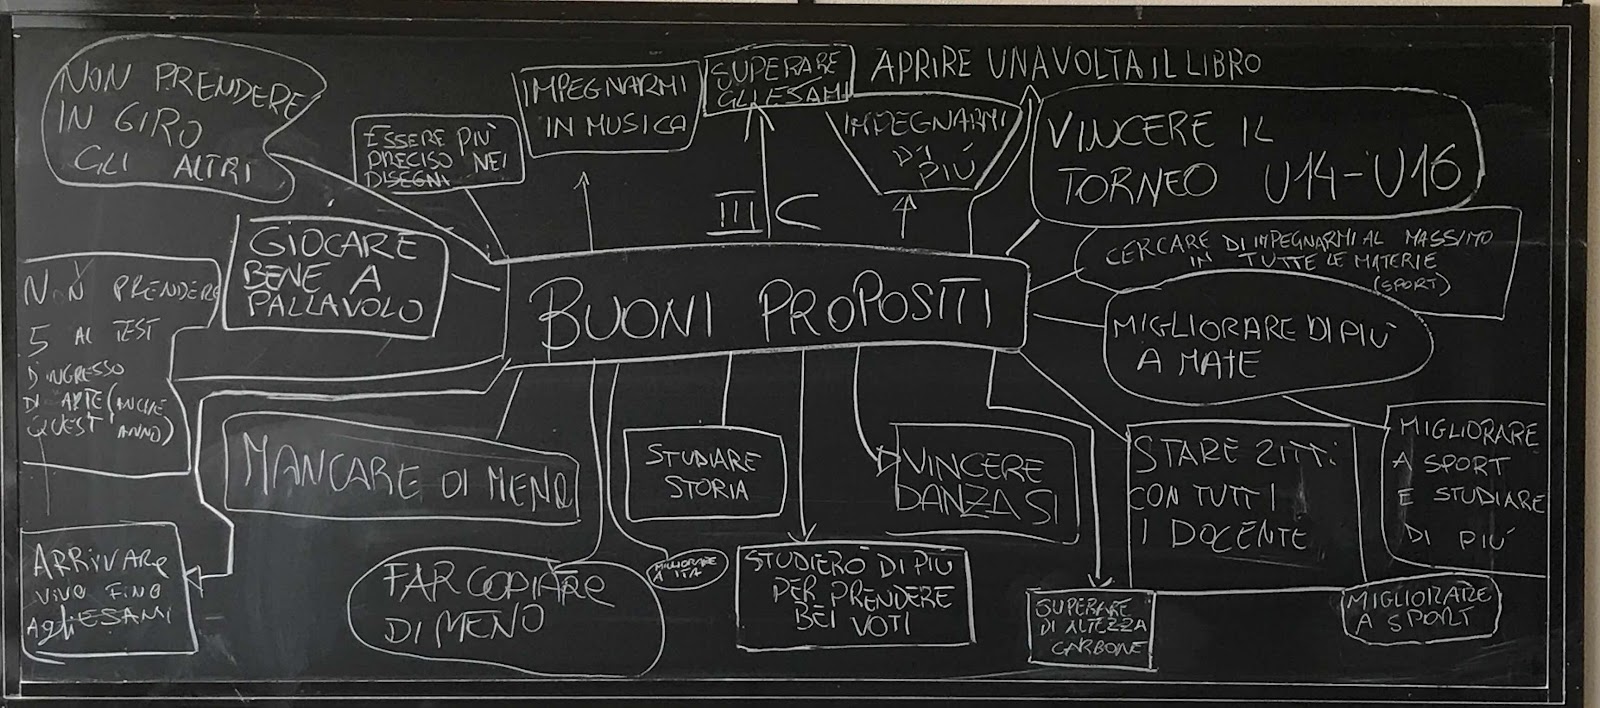 NON PRENDERE
IN GIRO
GLI ALTRI
ESSERE PIÙ
PRECISO NEI
DISEGNI
IMPEGNARMI
IN MUSICA
SUPERARE
GLI ESAMI
APRIRE UNA VOLTA IL LIBRO
IMPEGNARMI
DI
PIÚ
VINCERE IL
TORNEO U14-U16
III C
CERCARE DI IMPEGNARMI AL MASSIMO
IN TUTTE LE MATERIE
(SPORT)
GIOCARE
BENE A
PALLAVOLO
BUONI PROPOSITI
NON PRENDERE
5 AL TEST
D'INGRESSO
DI ARTE (ANCHE
QUEST'ANNO)
MIGLIORARE DI PIÙ
A MATE
MANCARE DI MENO
STUDIARE
STORIA
VINCERE
DANZA SI
STARE ZITTI
CON TUTTI
I DOCENTE
MIGLIORARE
A SPORT
E STUDIARE
DI PIÚ
ARRIVARE
VIVO FINO
AgLi ESAMI
FAR COPIARE
DI MENO
MIGLIORARE
A ITA
STUDIERÒ DI PIÙ
PER PRENDERE
BEI VOTI
SUPERARE
DI ALTEZZA
CARBONE
MIGLIORARE
A SPORT